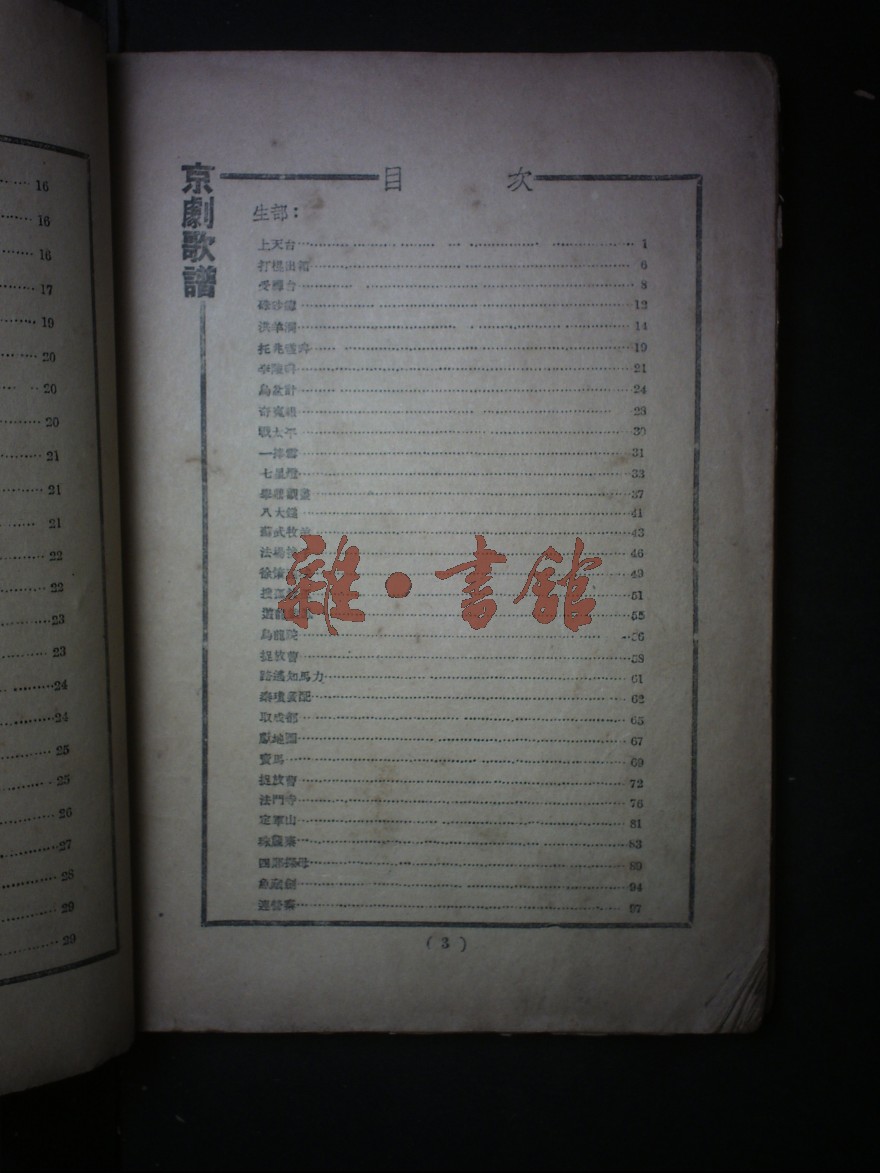 16
16
16
17
19
20
20
20
21
21
21
22
22
23
23
24
24
25
25
26
27
28
29
29
京劇歌譜
目 次
生部：
上天台 1
打棍出箱 6
受禪台 8
硃沙痣 12
洪羊洞 14
托兆碰碑 19
李陵碑 21
烏盆計 24
奇冤報
戰太平 30
一捧雪 31
七星燈 33
舉鼎觀畫 37
八大鎚 41
蘇武牧羊 43
法場 46
徐策 49
51
55
烏龍院 56
捉放曹 58
路遙知馬力 61
秦瓊發配 62
取成都 65
獻地圖 67
賣馬 69
捉放曹 72
法門寺 76
定軍山 81
珠簾寨 83
四郎探母 89
魚藏劍 94
連營寨 97
雜·書館
( 3 )